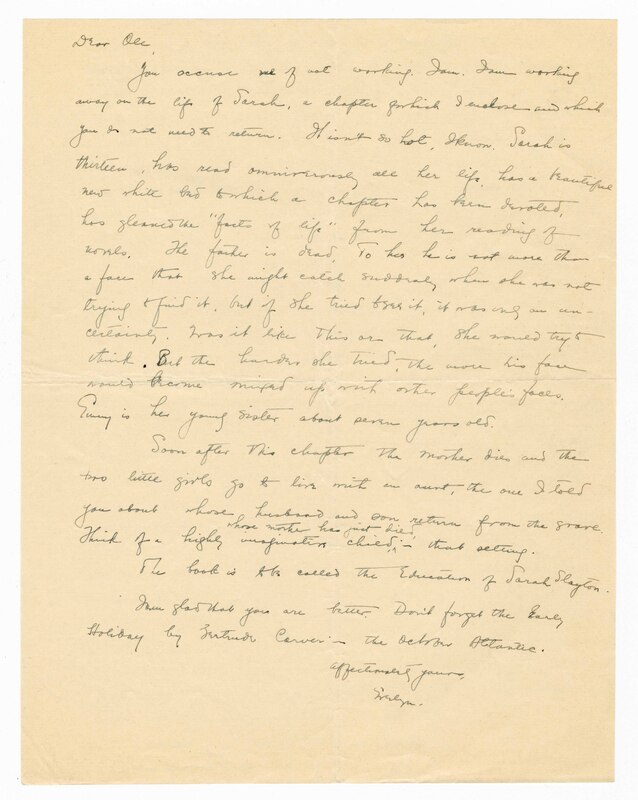 Dear Ole,
You accuse me of not working. I am. I am working
away on the life of Sarah, a chapter of which I enclose and which
you do not need to return. It isn't so hot, I know. Sarah is
thirteen, has read omniverously all her life, has a beautiful
new white bed to which a chapter has been devoted,
has gleaned the "facts of life" from her reading of
novels. The father is dead, To her he is not more than
a face that she might catch suddenly when she was not
trying to find it, but if she tried to see it, it was only an un-
certainty. Was it like this or that, she would try to
think. But the harder she tried, the more his face
would become mixed up with other people's faces.
Emmy is her young sister about seven years old.
Soon after this chapter the mother dies and the
two little girls go to live with an aunt, the one I told
you about whose husband and son return from the grave.
whose mother has just died
Think of a highly imaginative child, in that setting.
The book is to be called the Education of Sarah Slayton.
I am glad that you are better. Don't forget the Early
Holiday by Gertrude Carver in the October Atlantic.
Affectionately yours,
Evelyn.